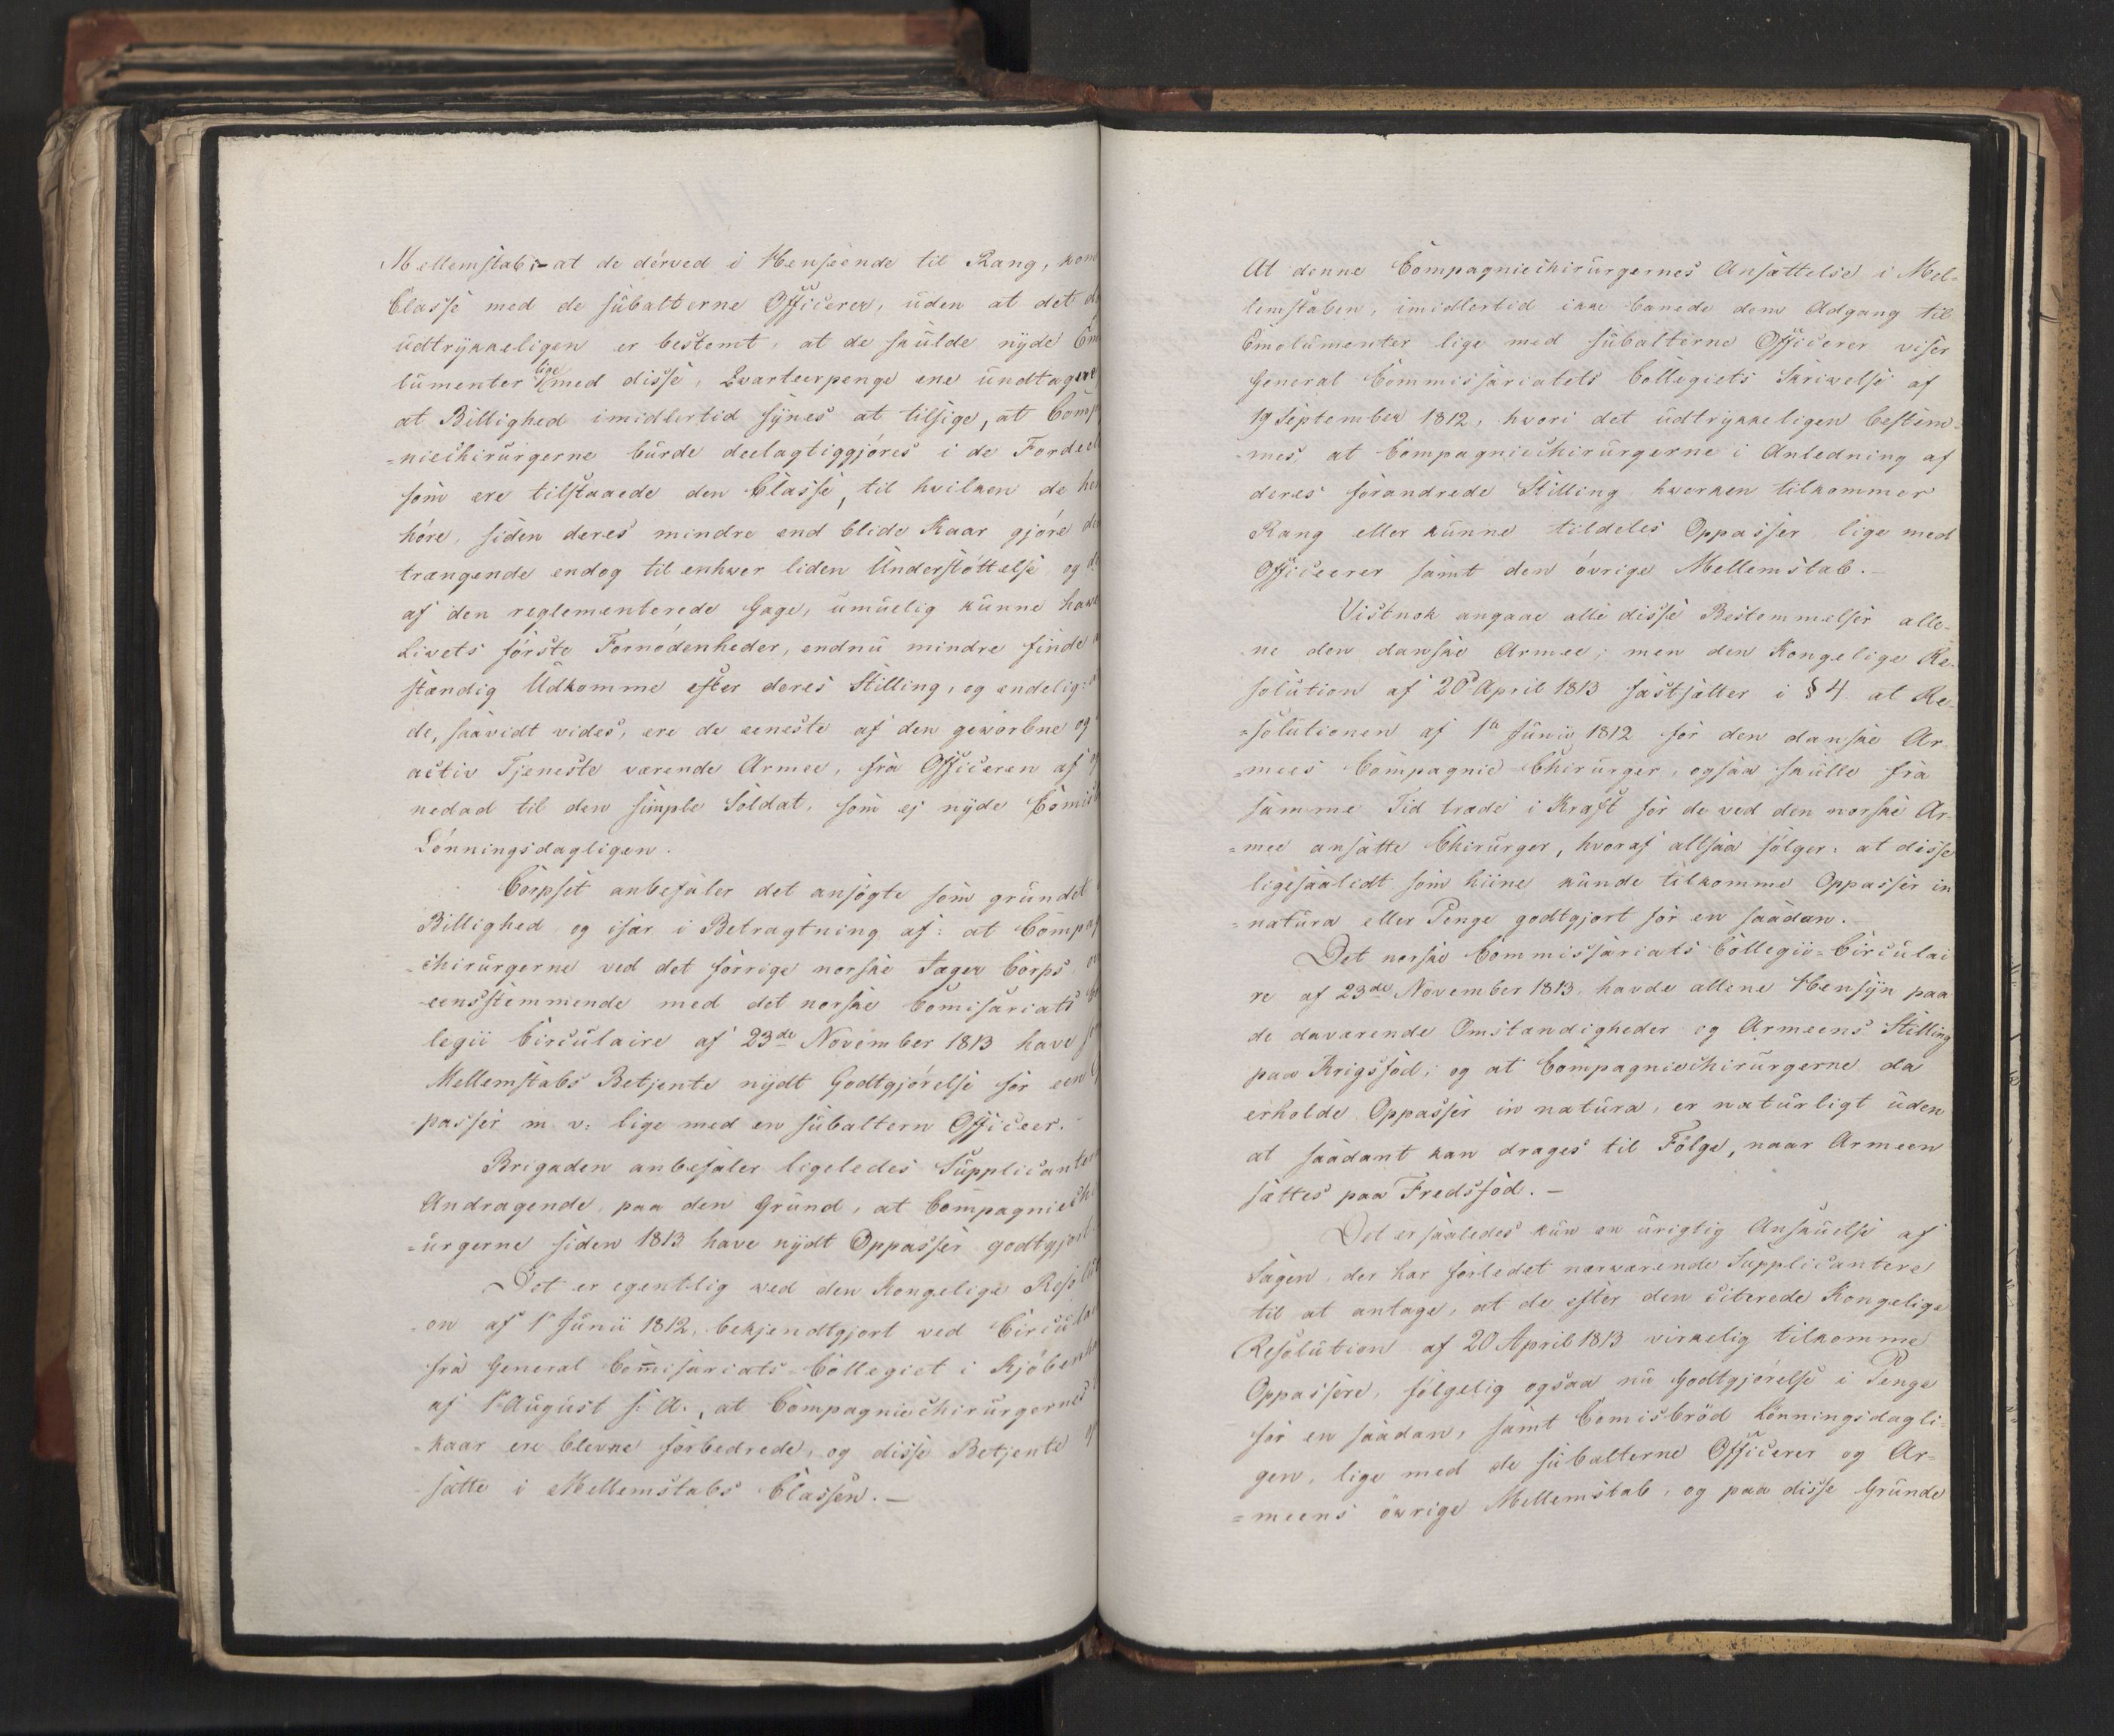 Mellemstab; at de dérved i Henseende til Rang, kom
Classe med de subalterne Officerer, uden at det
udtrykkeligen er bestemt, at de skulde nyde Em
lumenter lige med disse, Qvarteerpenge ene undtagne
at Billighed imidlertid synes at tilsige, at Comp
=niechirurgerne burde deelagtiggjøres i de Fordeel
som ere tilstaaede den Classe, til hvilken de hen
høre, siden deres mindre end blide Kaar gjøre
trængende endog til enhver liden Understøttelse og
af den reglementerede Gage, umuelig kunne have
Livets første Fornødenheder, endnu mindre finde
stændig Udkomme efter deres Stilling, og endelig:
de, saavidt vides, ere de eeneste af den gevorbne og
activ Tjeneste værende Armee, fra Officeren af
nedad til den simple Soldat, som ej nyde Comis
Lønningsdagligen.
Corpset anbefaler det ansøgte som grundet
Billighed og især i Betragtning af: at Compag
=chirurgerne ved det forrige norske Jæger Corps
eensstemmende med det norske Comisariats
legii Circulaire af 23de November 1813 have
Mellemstabs Betjente nydt Godtgjørelse for een
passer m. v: lige med en subaltern Officeer.
Brigaden anbefaler ligeledes Supplicanten
Andragende, paa den Grund, at Compagniechi
=urgerne siden 1813 have nydt Oppasser godtgjort
Det er egentlig ved den Kongelige Resoluti
on af 1e Junii 1812, bekjendtgjort ved Circulai
fra General Comisariats-Collegiet i Kjøbenha
af 1e August s: A:, at Compagniechirurgernes
=kaar ere blevne forbedrede, og disse Betjente
satte i Mellemstabs Classen.—
At denne Compagniechirurgernes Ansættelse i Mel=
lemstaben, imidlertid ikke banede dem Adgang til
Emolumenter lige med subalterne Officerer viser
General Commissariatets Collegiets Skrivelse af
19 September 1812, hvori det udtrykkeligen bestem=
=mes, at Compagniechirurgerne i Anledning af
deres forandrede Stilling hverken tilkommer
Rang eller kunne tildeles Oppasser lige med
Officeerer samt den øvrige Mellemstab.—
Vistnok angaae alle disse Bestemmelser alle=
ne den danske Armee; men den Kongelige Re=
solution af 20 April 1813 fastsætter i §4 at Re=
=solutionen af 1te Junii 1812 for den danske Ar
=mees Compagnie Chirurger, ogsaa skulle fra
samme Tid træde i Kraft for de ved den norske Ar=
=mee ansatte Chirurger, hvoraf altsaa følger: at disse
ligesaalidt som hiine kunde tilkomme Oppasser in
=natura eller Penge godtgjort for en saadan.—
Det norske Commissariats Collegii=Circulai
re af 23de November 1813. havde allene Hensyn paa
de daværende Omstændigheder og Armeens Stilling
paa Krigsfod; og at Compagniechirurgerne da
erholde Oppasser in natura, er naturligt uden
at saadant kan drages til Følge, naar Armeen
sættes paa Fredsfod.—
Det er saaledes kun en urigtig Anskuelse af
Sagen, der har forledet nærværende Supplicantere
til at antage, at de efter den citerede Kongelige
Resolution af 20 April 1813 virkelig tilkomme
Oppassere, følgelig ogsaa nu Godtgjørelse i Penge
for en saadan, samt Comisbrød Lønningsdagli=
gen, lige med de subalterne Officerer og Ar=
=meens øvrige Mellemstab, og paa disse Grunde